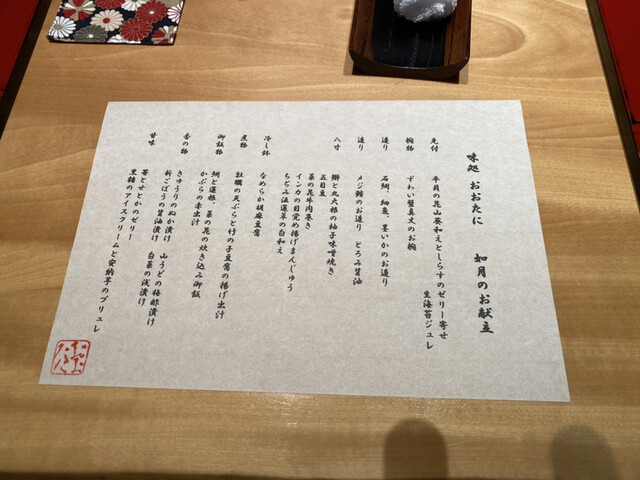 味処 おおたに 如月のお献立
先付 平貝の花山葵和えとしらすのゼリー寄せ
生海苔ジュレ
椀物 ずわい蟹真丈のお椀
造り 石鯛、細魚、墨いかのお造り
造り メジ鮪のお造り とろみ醤油
八寸 鰤と丸大根の柚子味噌焼き
五目豆
菜の花牛肉巻き
インカの目覚め揚げまんじゅう
ちぢみ法蓮草の白和え
冷し鉢 なめらか胡麻豆腐
煮物 牡蠣の天ぷらと竹の子豆腐の揚げ出汁
御飯物 鯛と蓮根、菜の花の炊き込み御飯
かぶらの赤出汁
香の物 きゅうりのぬか漬け 山うどの梅酢漬け
新ごぼうの醤油漬け 白菜の浅漬け
甘味 苺とせとかのゼリー
黒糖のアイスクリームと安納芋のブリュレ